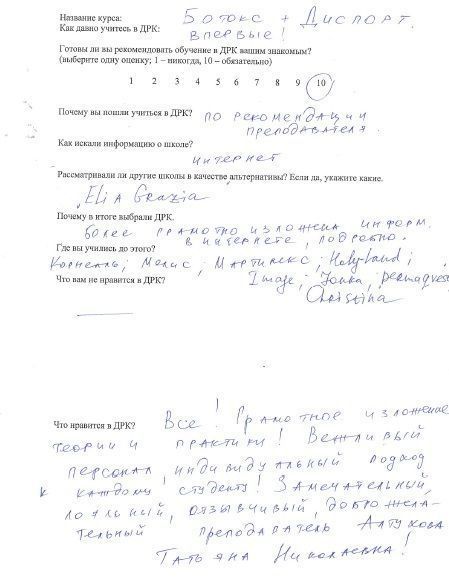 Название курса: Ботокс + Диспорт.
Как давно учитесь в ДРК: Впервые!
Готовы ли вы рекомендовать обучение в ДРК вашим знакомым?
(выберите одну оценку; 1 – никогда, 10 – обязательно)
1 2 3 4 5 6 7 8 9 10
Почему вы пошли учиться в ДРК? по рекомендации
преподавателя.
Как искали информацию о школе?
интернет
Рассматривали ли другие школы в качестве альтернативы? Если да, укажите какие.
Elia Grazia
Почему в итоге выбрали ДРК.
более грамотно изложена информ.
в интернете, подробно.
Где вы учились до этого?
Корнеаль; Мелис; Мартинекс; Holyland;
Что вам не нравится в ДРК? Image; Janka;
Christina
Что нравится в ДРК? Все! Грамотное изложение
теории и практики! Вежливый
персонал, индивидуальный подход
к каждому студенту! Замечательный,
лояльный, отзывчивый, доброжела-
тельный преподаватель Алтухова
Татьяна Николаевна!